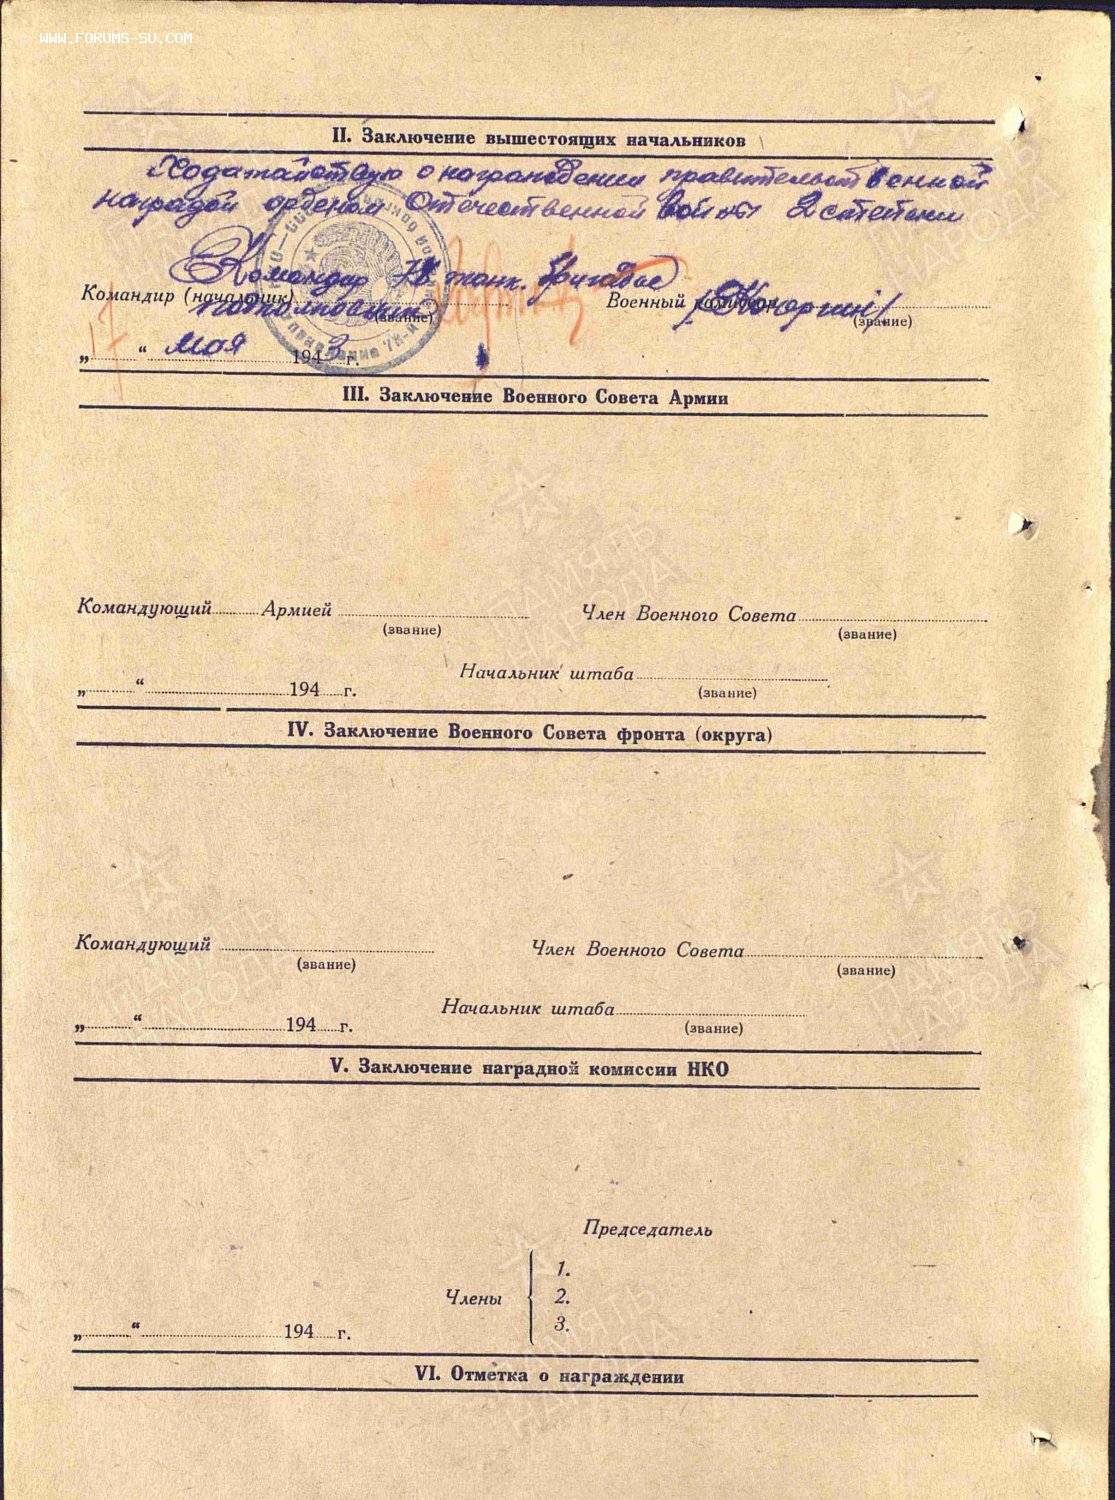 WWW.FORUMS-SU.COM
II. Заключение вышестоящих начальников
Ходатайствую о награждении правительственной
наградой орденом Отечественной войны 2 степени
Командир танк. бригады
Командир (начальник) Военный комиссар
подполковник
(звание) (звание)
„17“ мая 1943 г.
III. Заключение Военного Совета Армии
Командующий Армией Член Военного Совета
(звание) (звание)
Начальник штаба
„ “ 194 г. (звание)
IV. Заключение Военного Совета фронта (округа)
Командующий Член Военного Совета
(звание) (звание)
Начальник штаба
„ “ 194 г. (звание)
V. Заключение наградной комиссии НКО
Председатель
1.
Члены 2.
3.
„ “ 194 г.
VI. Отметка о награждении
ПАМЯТЬ
НАРОДА